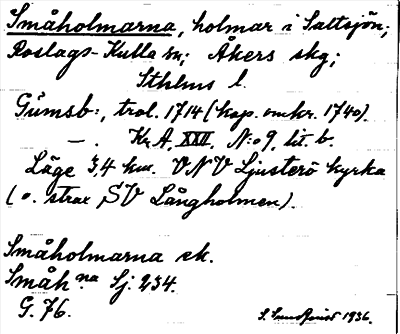 Småholmarna, holmar i Saltsjön;
Roslags-Kulla sn; Åkers skg;
Sthlms l.
Gumsb:, trol. 1714 (kop. omkr. 1740).
— . Kr. A. XXII, N:o 9, lit. b.
Läge 3,4 km. VNV Ljusterö kyrka
(o. strax SV Långholmen).
Småholmarna ek.
Småh.na Sj. 234.
G. 76.
1936.